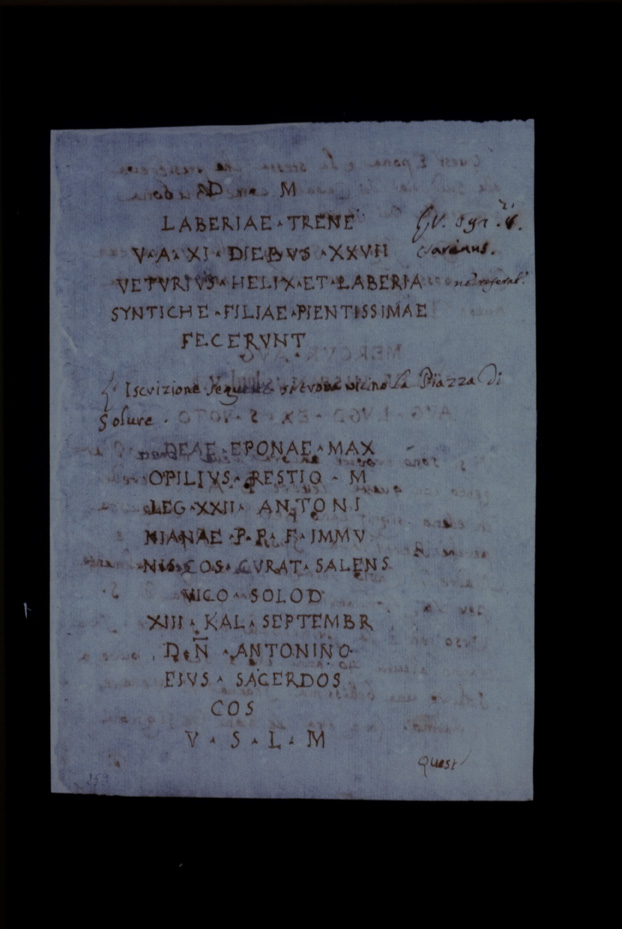 D M
LABERIAE · TRENE
V · A · XI · DIEBVS · XXVII
VETVRIVS · HELIX · ET · LABERIA
SYNTICHE · FILIAE · PIENTISSIMAE
FECERVNT
Iscrizione seguente si trova vicino la Piazza di
Solure.
DEAE · EPONAE · MAX
OPILIVS · RESTIO · M
LEG · XXII · ANTONI
NIANAE · P · R · F · IMMV
NIS · COS · CVRAT · SALENS
VICO · SOLOD
XIII · KAL · SEPTEMBR
D · N̅ · ANTONINO
EIVS · SACERDOS
COS
V · S · L · M
Quest